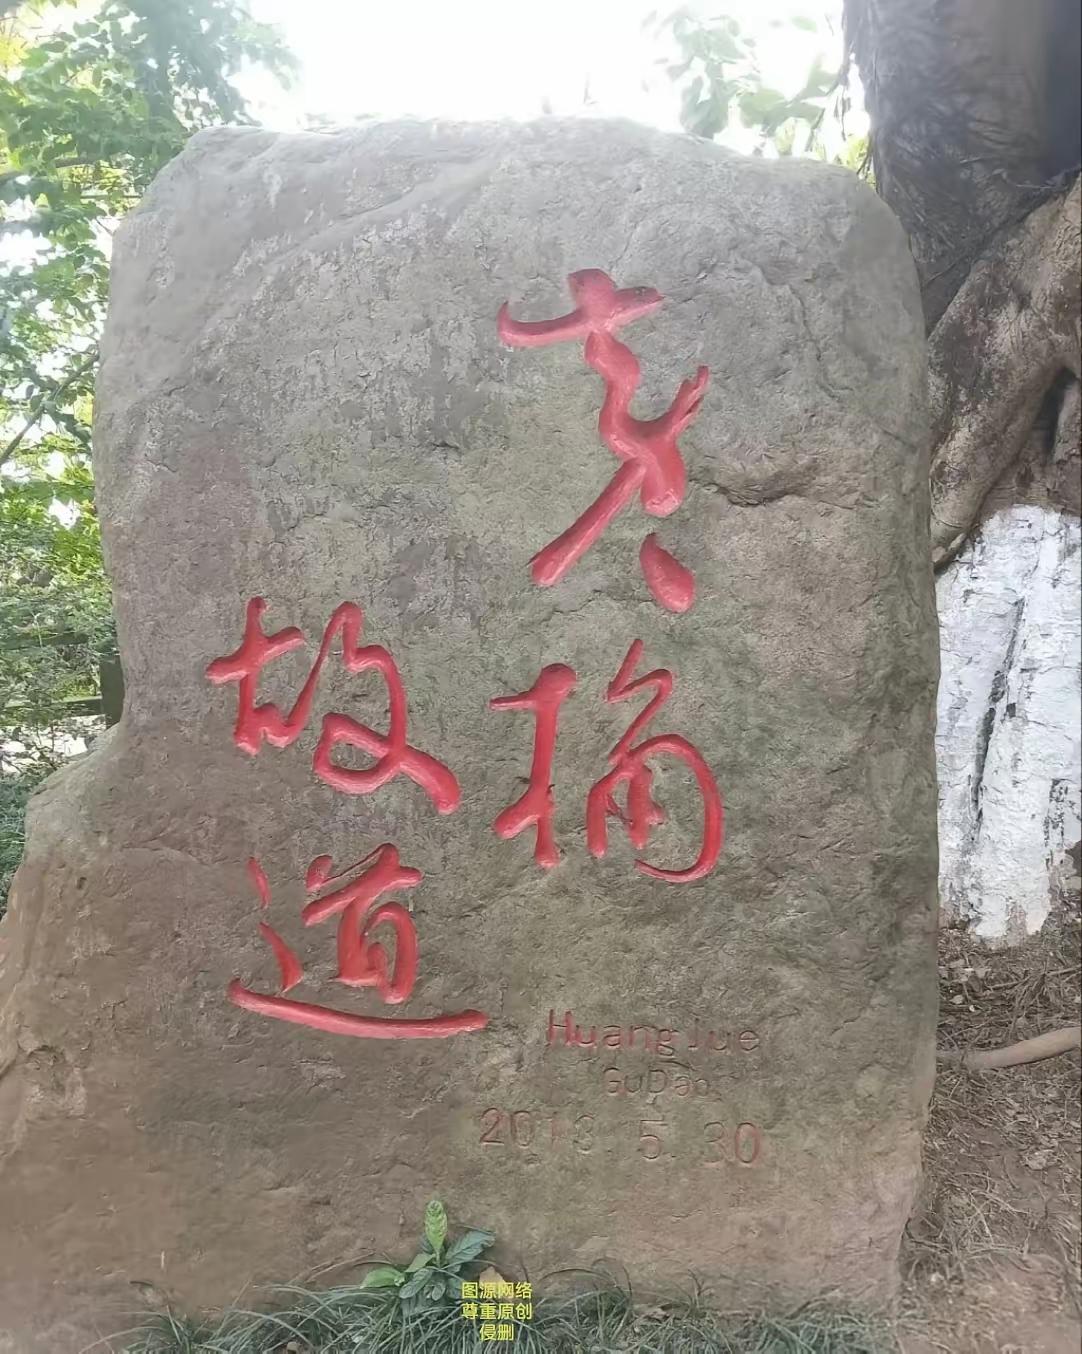 黄桷
故道
Huang Jue
GuDao
2013 5.30
图源网络
尊重原创
侵删